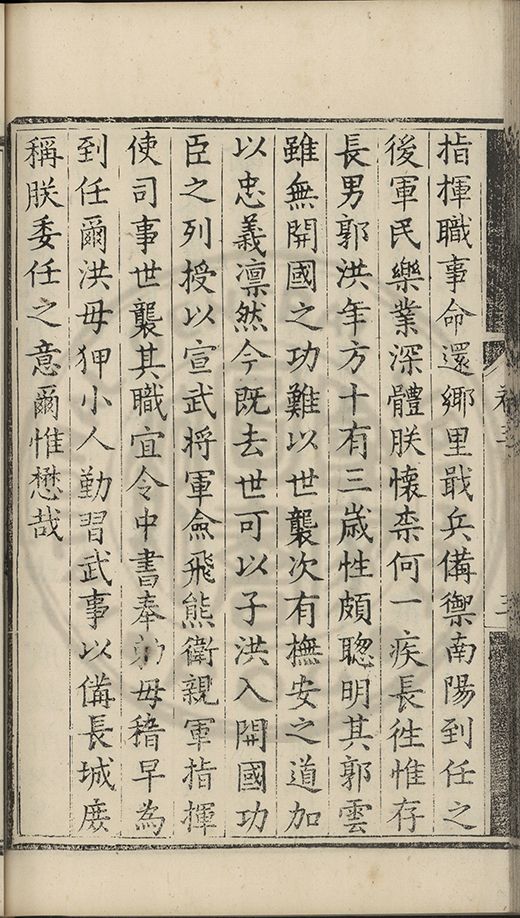 指揮職事命還鄉里戢兵備禦南陽到任之
後軍民樂業深體朕懷柰何一疾長徃惟存
長男郭洪年方十有三歲性頗聰明其郭雲
雖無開國之功難以世襲次有撫安之道加
以忠義凛然今既去世可以子洪入開國功
臣之列授以宣武将軍僉飛熊衛親軍指揮
使司事世襲其職宜令中書奉勑毋稽早為
到任爾洪毋狎小人勤習武事以備長城庶
稱朕委任之意爾惟懋哉